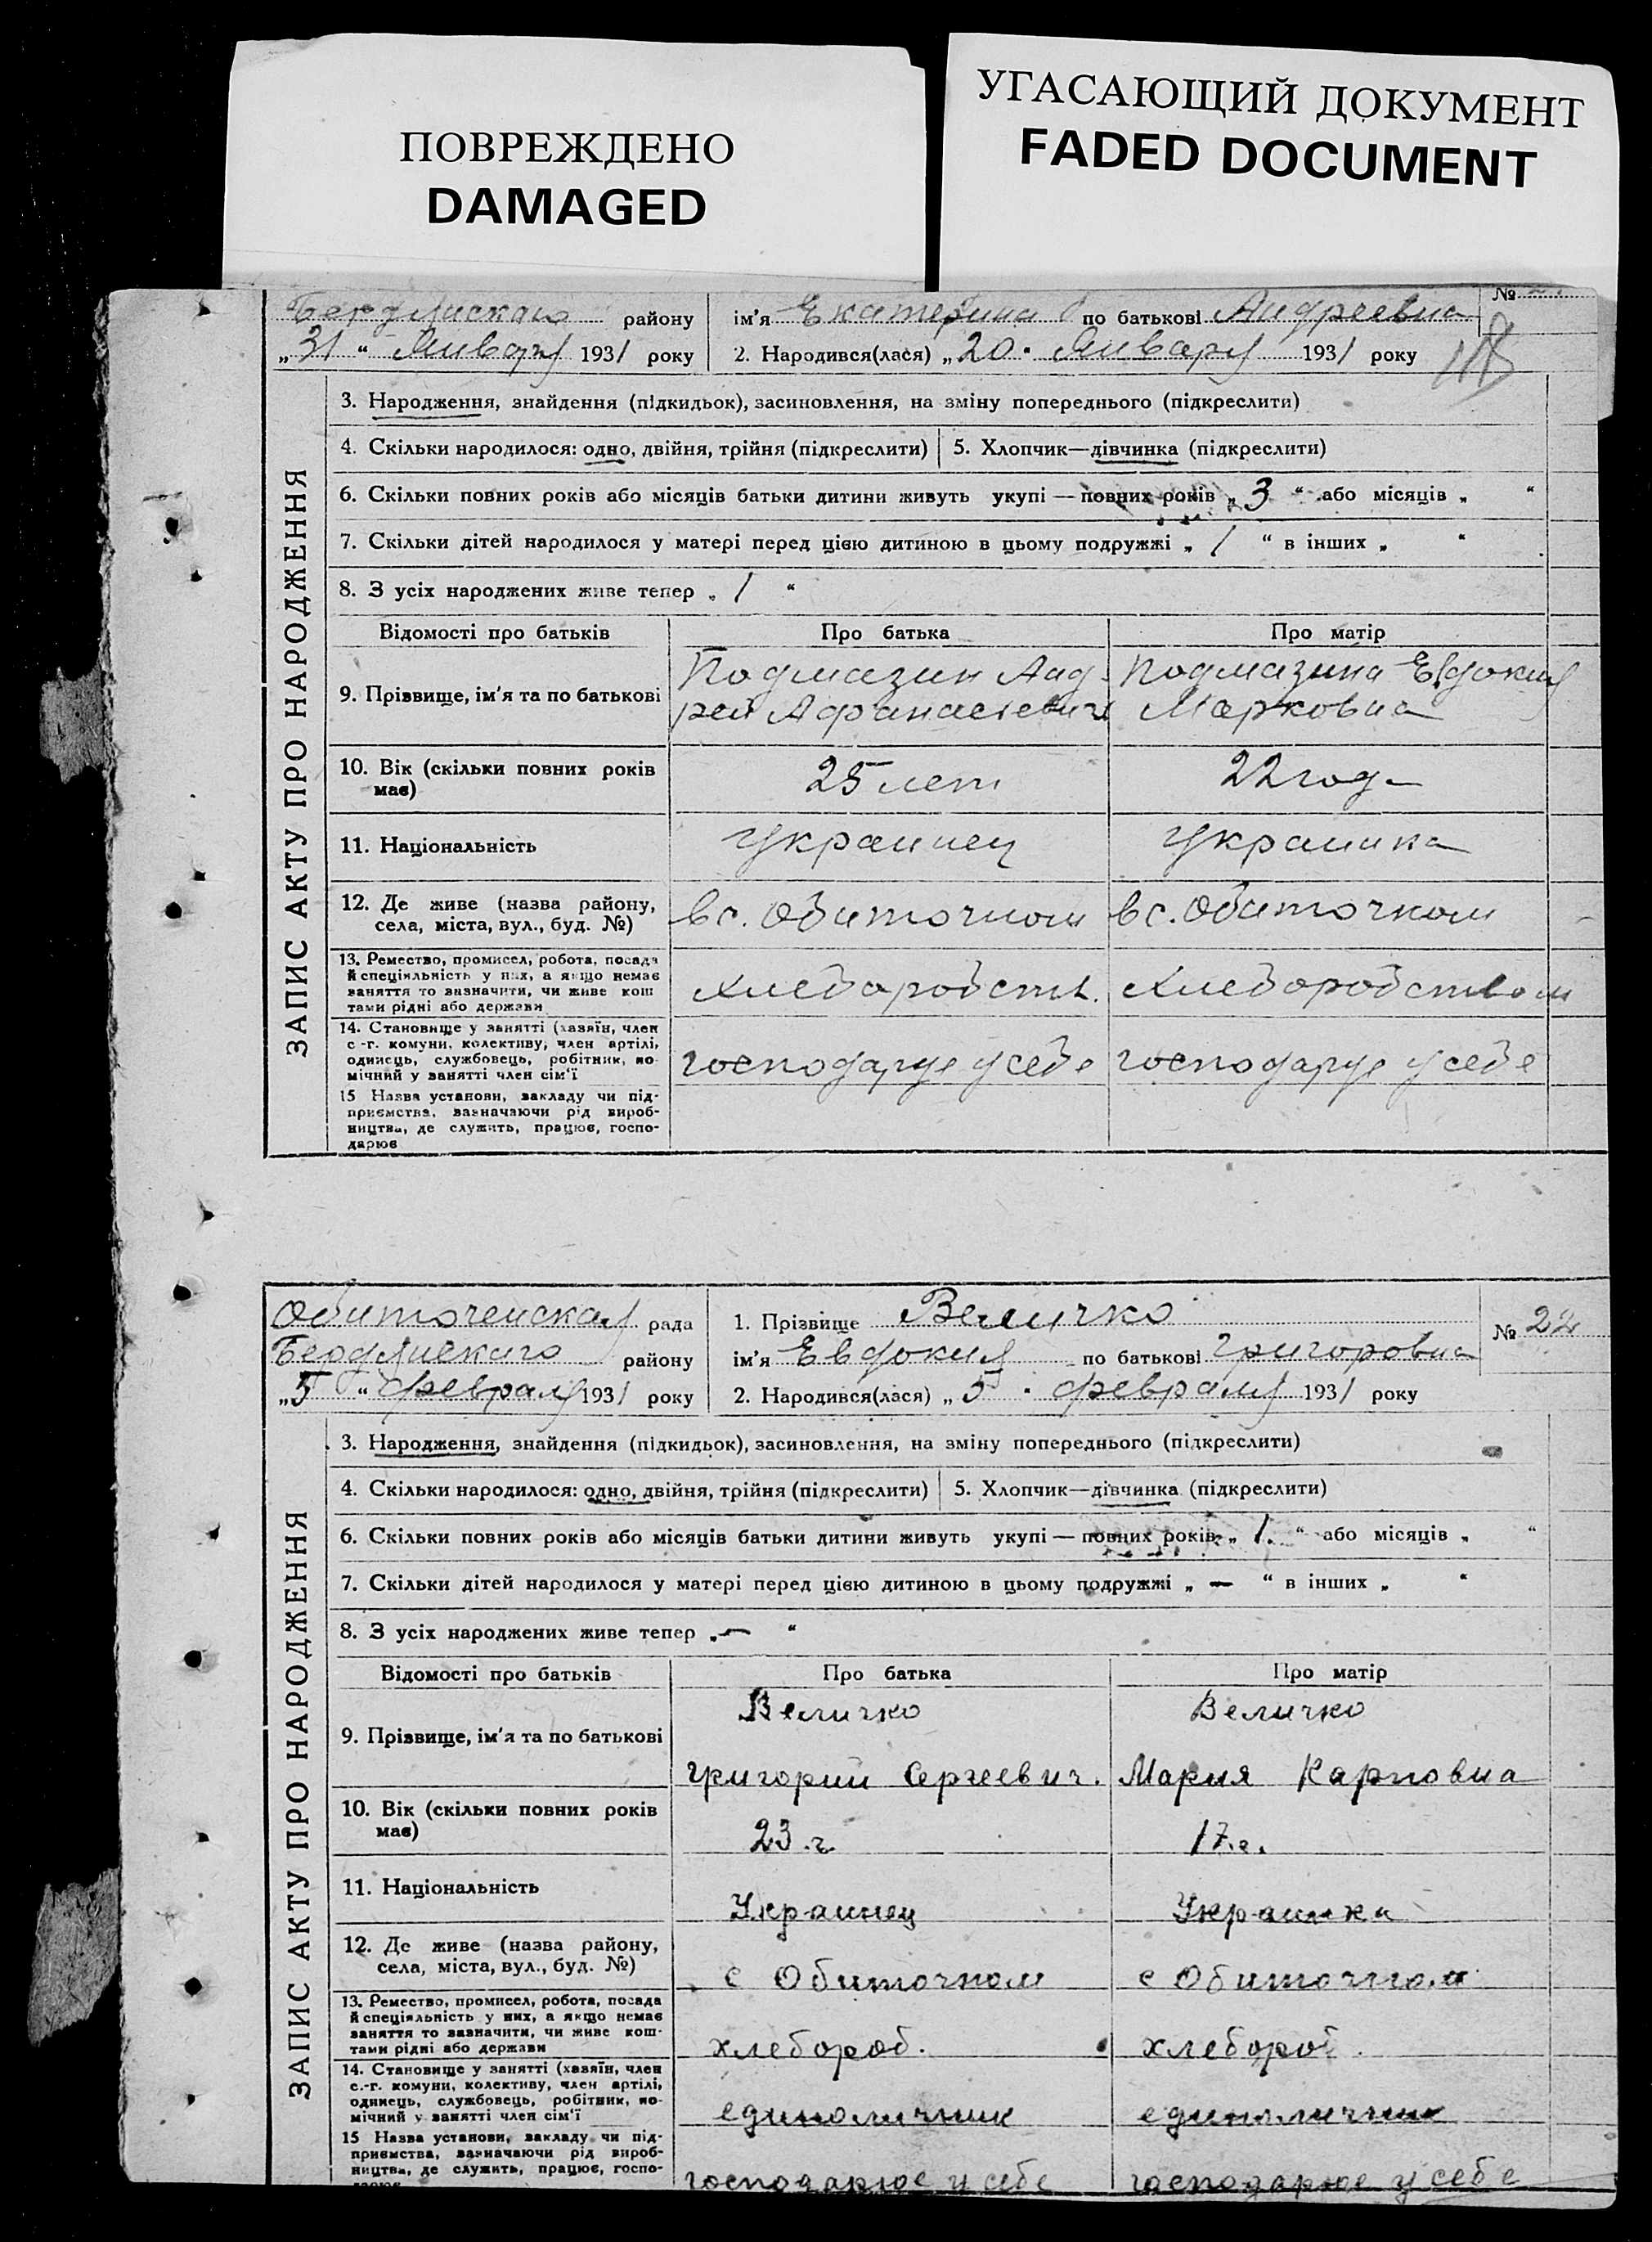 ПОВРЕЖДЕНО
DAMAGED
УГАСАЮЩИЙ ДОКУМЕНТ
FADED DOCUMENT
Бердянского району
ім'я Екатерина по батькові Андреевна
№
„31“ Января 1931 року
2. Народився(лася) „20“ Января 1931 року
ЗАПИС АКТУ ПРО НАРОДЖЕННЯ
3. Народження, знайдення (підкидьок), засиновлення, на зміну попереднього (підкреслити)
4. Скільки народилося: одно, двійня, трійня (підкреслити)
5. Хлопчик—дівчинка (підкреслити)
6. Скільки повних років або місяців батьки дитини живуть укупі — повних років „3“ або місяців „ “
7. Скільки дітей народилося у матері перед цією дитиною в цьому подружжі „1“ в інших „ “
8. З усіх народжених живе тепер „1“
Відомості про батьків
Про батька
Про матір
9. Прізвище, ім'я та по батькові
Подмазин Анд-
рей Афанасиевич
Подмазина Евдокия
Марковна
10. Вік (скільки повних років
має)
25 лет
22 год
11. Національність
Украинец
Украинка
12. Де живе (назва району,
села, міста, вул., буд. №)
в с. Обиточном
в с. Обиточном
13. Ремество, промисел, робота, посада
й спеціяльність у них, а якщо немає
заняття то зазначити, чи живе кош
тами рідні або держави
Хлебороbств.
Хлебороbством
14. Становище у занятті (хазяїн, член
с.-г. комуни, колективу, член артілі,
одинець, службовець, робітник, по-
мічний у занятті член сім'ї
господарує у себе
господарує у себе
15 Назва установи, закладу чи під-
приємства, зазначаючи рід вироб-
ництва, де служить, працює, госпо-
дарює
Обиточенская рада
1. Прізвище Величко
№ 22
Бердянского району
ім'я Евдокия по батькові Григоровна
„5“ февраля 1931 року
2. Народився(лася) „5“ февраля 1931 року
ЗАПИС АКТУ ПРО НАРОДЖЕННЯ
3. Народження, знайдення (підкидьок), засиновлення, на зміну попереднього (підкреслити)
4. Скільки народилося: одно, двійня, трійня (підкреслити)
5. Хлопчик—дівчинка (підкреслити)
6. Скільки повних років або місяців батьки дитини живуть укупі — повних років „1.“ або місяців „ “
7. Скільки дітей народилося у матері перед цією дитиною в цьому подружжі „—“ в інших „ “
8. З усіх народжених живе тепер „—“
Відомості про батьків
Про батька
Про матір
9. Прізвище, ім'я та по батькові
Величко
Григорий Сергеевич.
Величко
Мария Карповна
10. Вік (скільки повних років
має)
23.г.
17.г.
11. Національність
Украинец
Украинка
12. Де живе (назва району,
села, міста, вул., буд. №)
с Обиточном
с Обиточном
13. Ремество, промисел, робота, посада
й спеціяльність у них, а якщо немає
заняття то зазначити, чи живе кош-
тами рідні або держави
хлебороб.
хлебороб.
14. Становище у занятті (хазяїн, член
с.-г. комуни, колективу, член артілі,
одинець, службовець, робітник, по-
мічний у занятті член сім'ї
единоличник
единоличник
15 Назва установи, закладу чи під-
приємства, зазначаючи рід вироб-
ництва, де служить, працює, госпо-
господарює у себе
господарює у себе